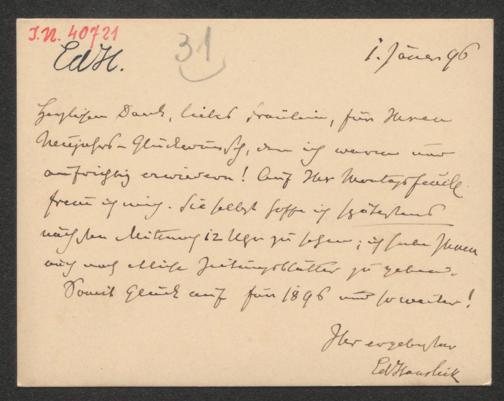 I.N. 40721
EdH.
31
1. Jäner 96
Herzlichen Dank, liebes Fräulein, für Ihren
Neujahrs-Glückwunsch, den ich warm und
aufrichtig erwiedere! Auf Ihr Montagsfeuill.
freue ich mich. Sie selbst hoffe ich spätestens
nächsten Mittwoch 12 Uhr zu sehen; ich habe Ihnen
auch noch Zeitungsblätter zu geben.
Somit Glück auf für 1896 und so weiter!
Ihr ergebenster
EdHanslick